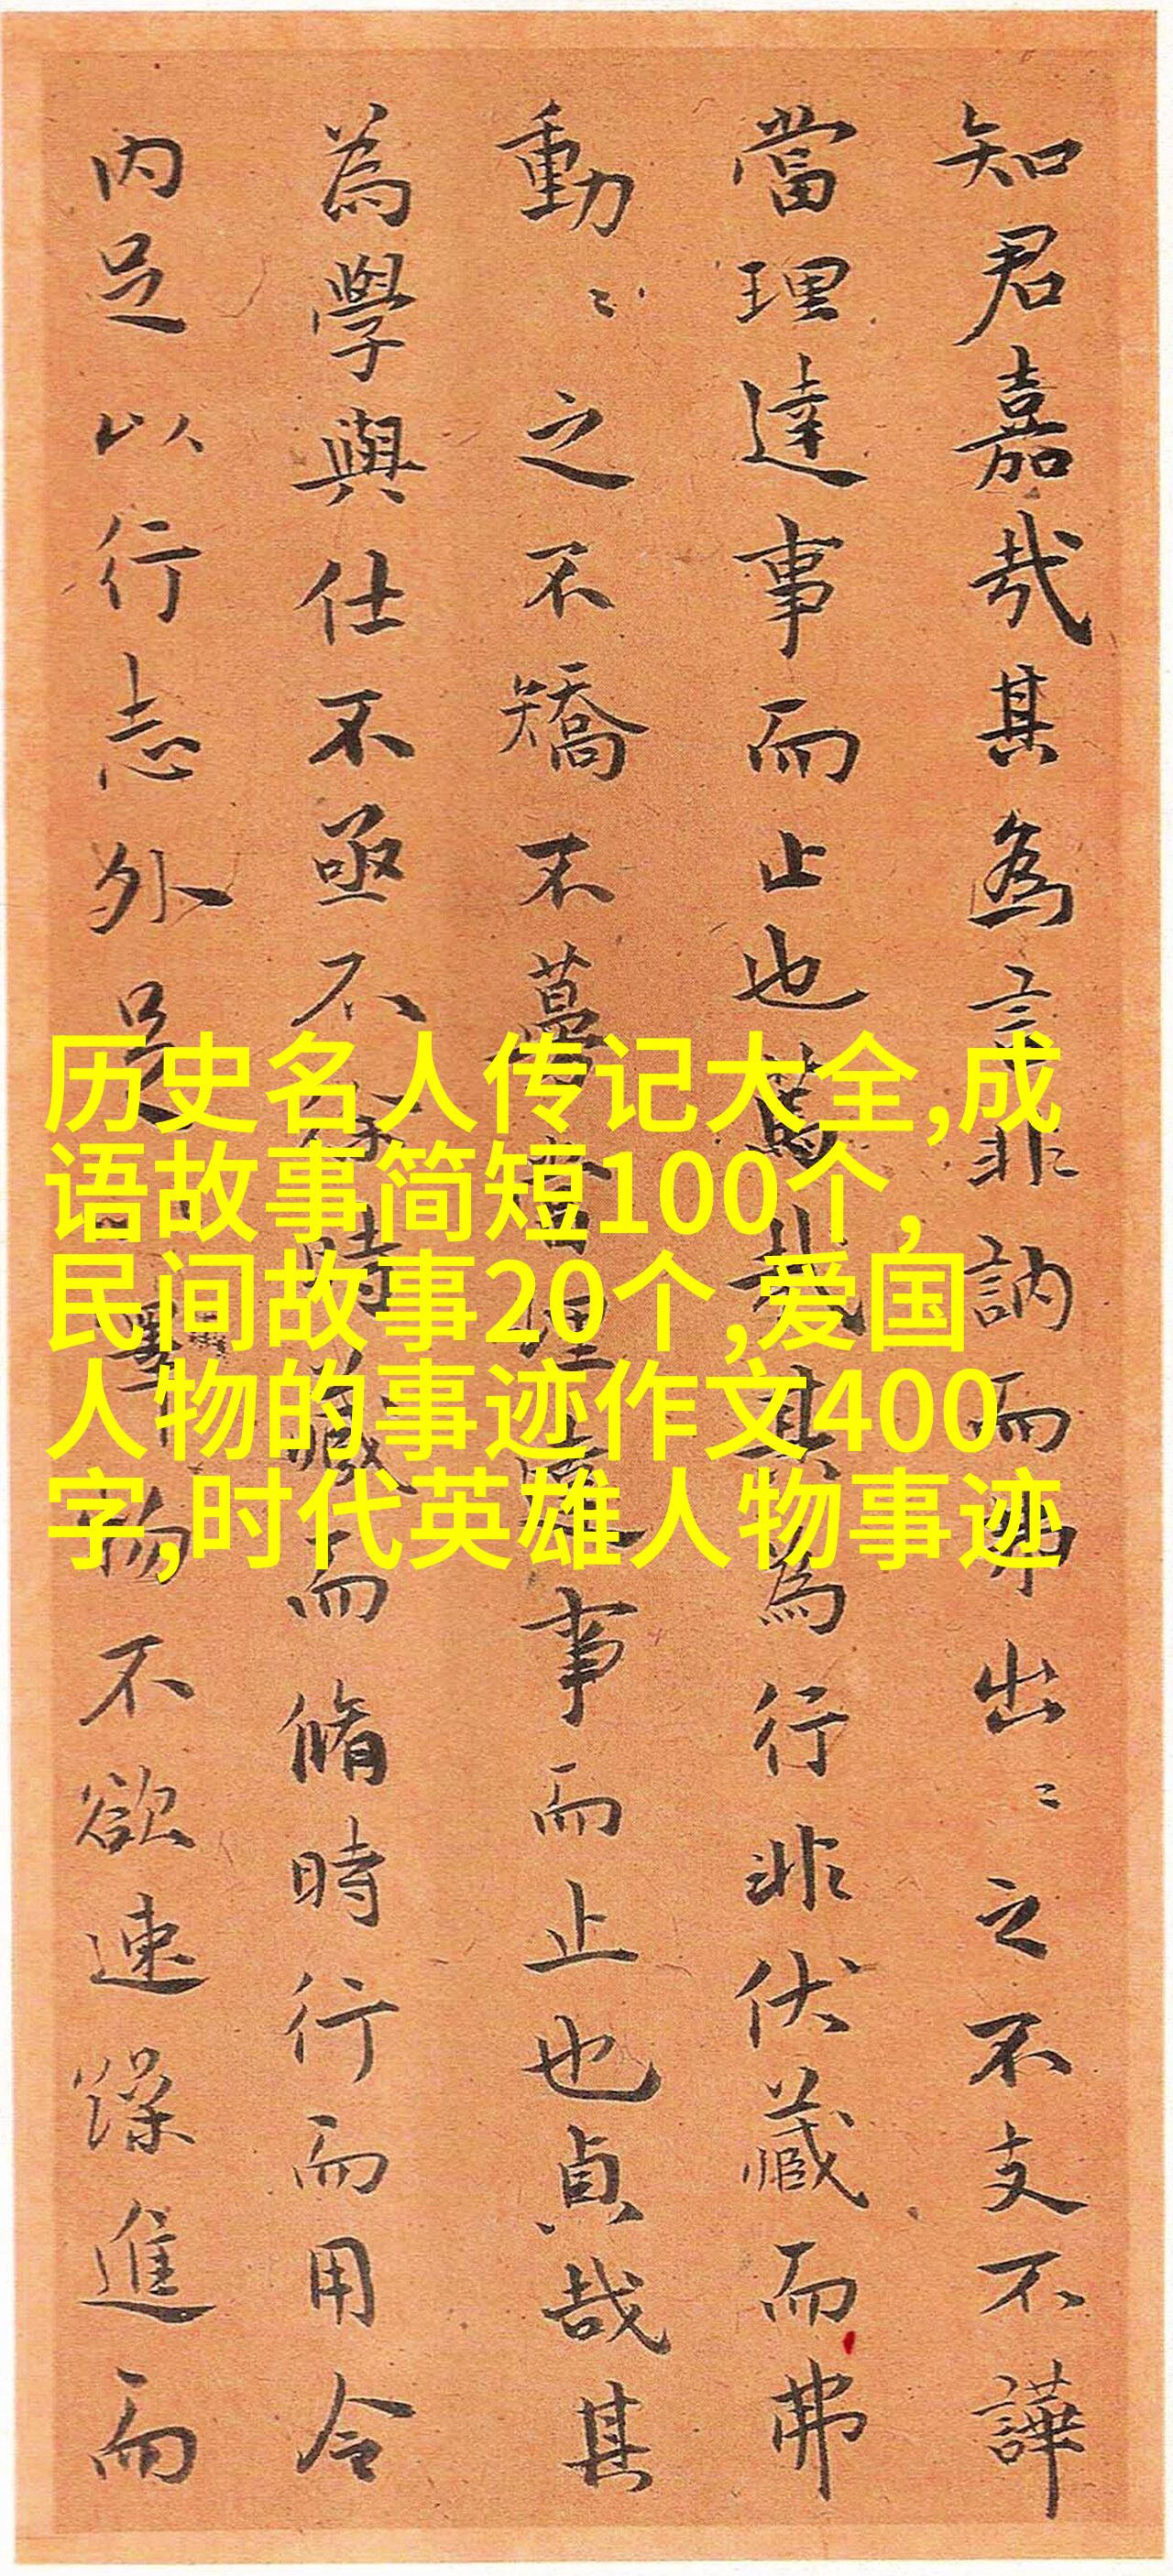 知君嘉哉其為言非訥而弗出〻之不支不譁
當理達事而止也篤哉其為行非伏藏而弗
動〻之不矯不蔓當理達事而止也貞哉其
為學與仕不亟不徐時藏而脩時行而用令
内足以行志外足不欲速躁進而
历史名人传记大全,成
语故事简短100个,
民间故事20个,爱国
人物的事迹作文400
字,时代英雄人物事迹